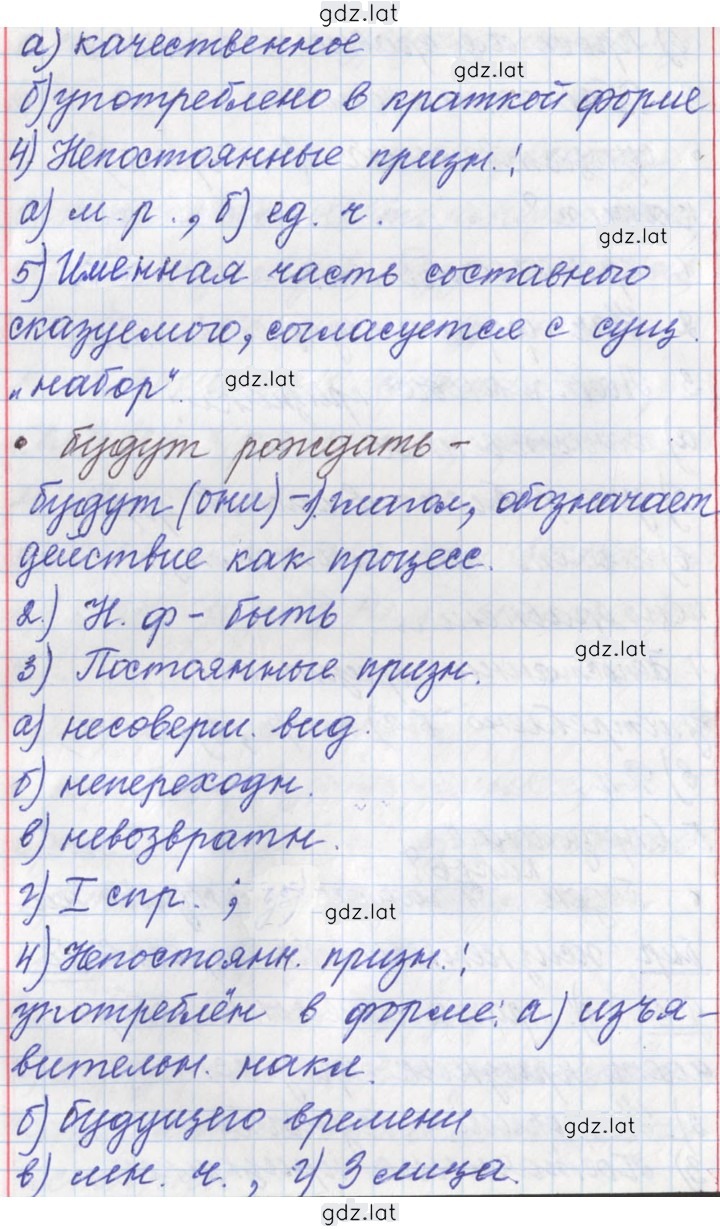 gdz.lat
а) качественное
gdz.lat
б) употреблено в краткой форме
4) Непостоянные призн.:
а) м. р., б) ед. ч.
gdz.lat
5) Именная часть составного
сказуемого, согласуется с сущ.
„набор".
gdz.lat
• будут рождать -
будут (они) - 1) глагол, обозначает
действие как процесс.
2) Н. ф - быть
gdz.lat
3) Постоянные призн.
а) несоверш. вид.
б) непереходн.
в) невозвратн.
г) I спр.;
gdz.lat
4) Непостоянн. призн.:
употреблён в форме: а) изъя-
вительн. накл.
б) будущего времени
gdz.lat
в) мн. ч., г) 3 лица.
gdz.lat